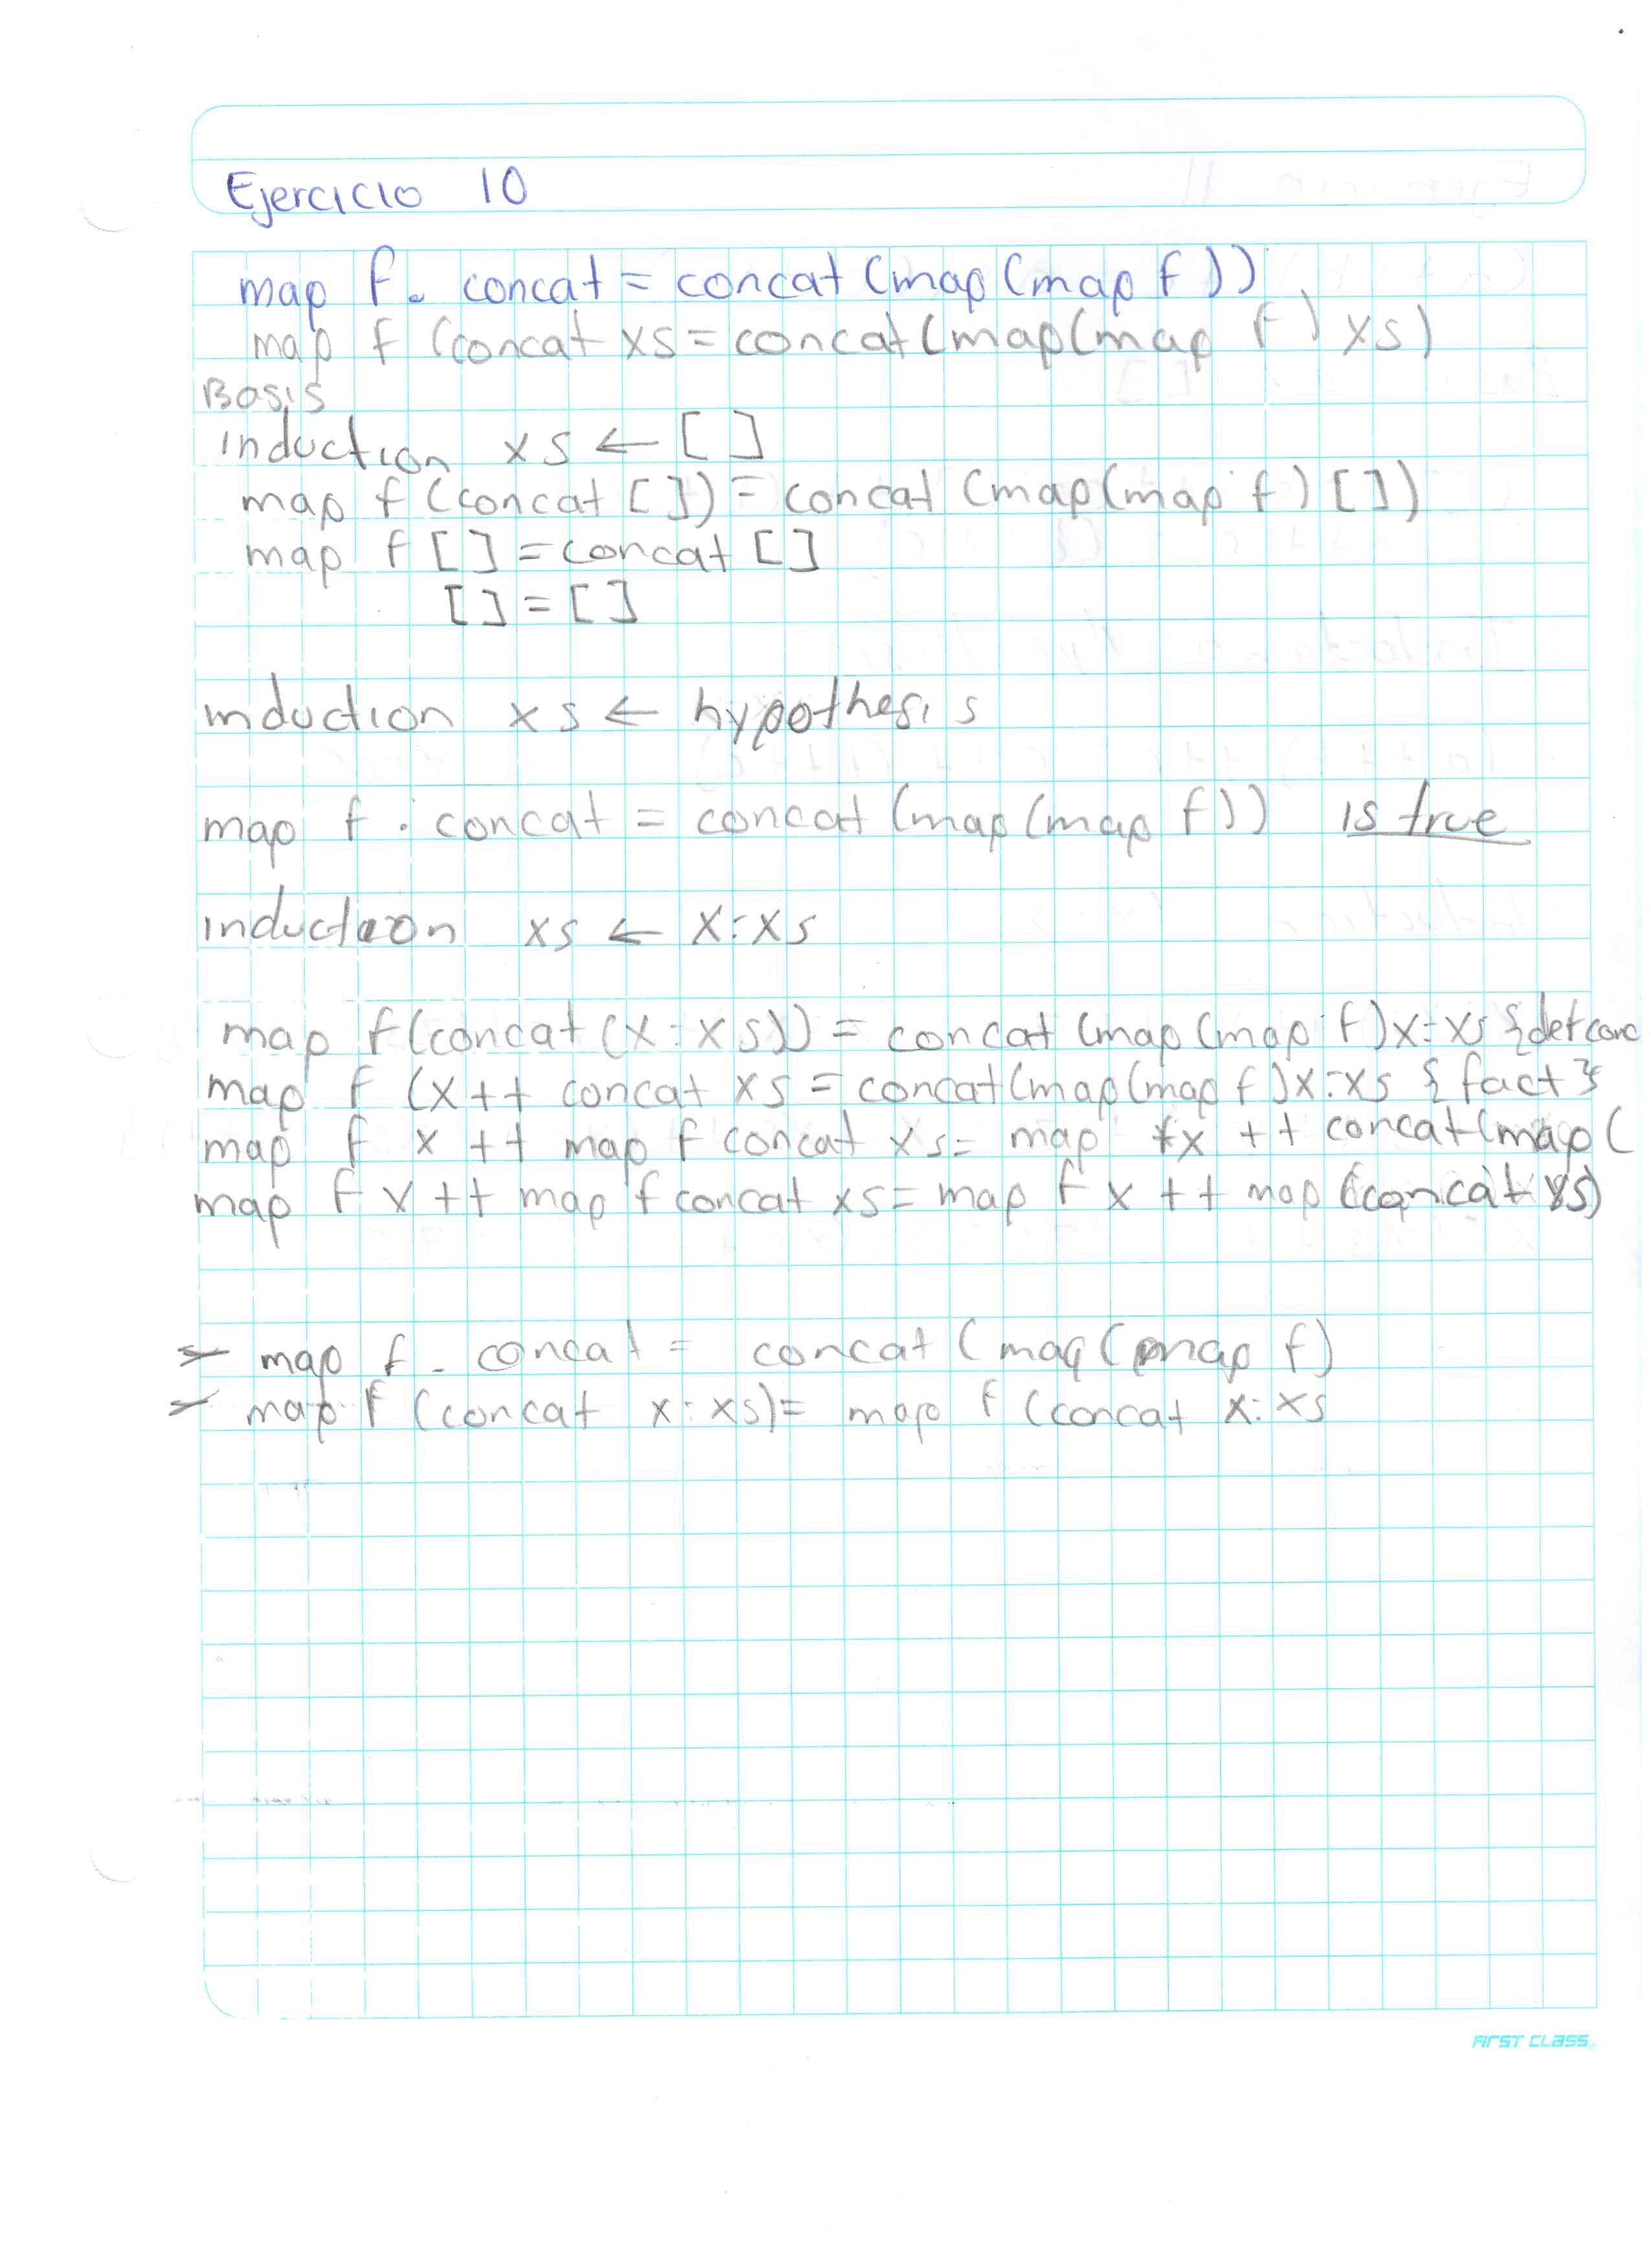 Ejercicio 10
map f. concat = concat (map (map f))
map f (concat xs = concat (map (map f) xs)
Basis
induction xs ← [ ]
map f (concat [ ]) = concat (map (map f) [ ])
map f [ ] = concat [ ]
[ ] = [ ]
induction xs ← hypothesis
map f . concat = concat (map (map f)) is true
induction xs ← x:xs
map f (concat (x:xs)) = concat (map (map f) x:xs {def conc
map f (x ++ concat xs = concat (map (map f) x:xs {fact}
map f x ++ map f concat xs = map fx ++ concat (map (
map f x ++ map f concat xs = map f x ++ map (concat xs)
map f . concat = concat (map (map f)
map f (concat x:xs) = map f (concat x:xs
FIRST CLASS